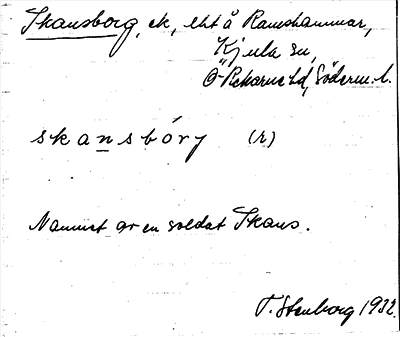 Skansborg, ek, lht å Ramshammar,
Kjula sn,
Ö-Rekarne hd, Söderm. l.
skansbóry (r)
Namnet av en soldat Skans.
T. Stenborg 1932.